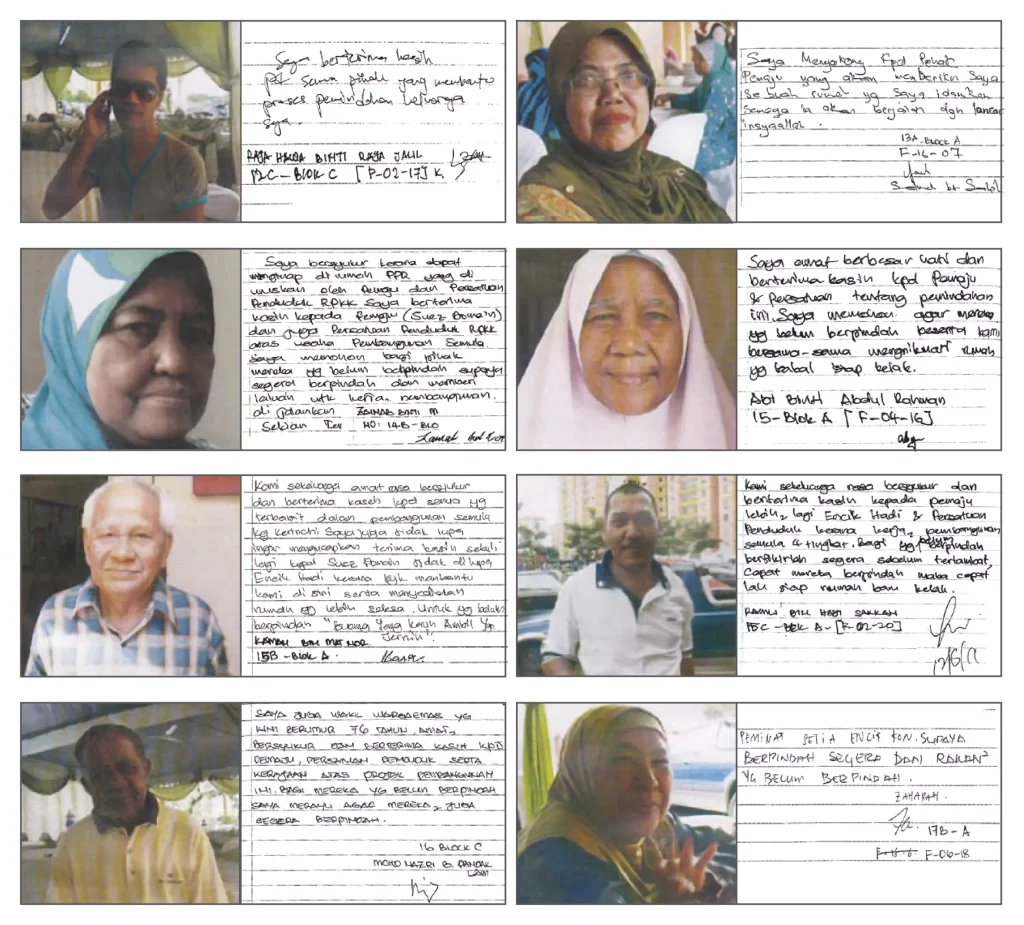 Saya berterima kasih
pd semua pihak yang membantu
proses pemindahan keluarga
saya.
RAJA HALIJA BINTI RAJA JALIL
12C - BLOK C [F-02-17] K
Saya Menyokong Kpd Pihak
Pemaju yang akan memberikan Saya
Sebuah rumah yg Saya idamkan
Semoga ia akan berjalan dgn lancar
insyaallah.
13A - BLOCK A
F-16-07
Saya bersyukur kerana dapat
menginap di rumah PPR yang di
uruskan oleh Pemaju dan Persatuan
Penduduk RPKK Saya berterima
kasih kepada Pemaju (Suez Domain)
dan juga Persatuan Penduduk RPKK
atas usaha Pembangunan Semula.
Saya memohon bagi pihak
mereka yg belum berpindah supaya
segera berpindah dan memberi
laluan utk kerja2 pembangunan
di jalankan ZAINAB BINTI M
Sekian NO: 14B - BLO
Saya amat berbesar hati dan
berterima kasih kpd Pemaju
& Persatuan tentang pemindahan
ini. Saya memohon agar mereka
yg belum berpindah beserta kami
bersama-sama mengnikmati rumah
yg bakal siap kelak.
Binti Abdul Rahman
15 - Blok A [F-04-16]
Kami sekeluarga amat rasa bersyukur
dan berterima kaseh kpd semua yg
terbabit dalam pembangunan semula
kg kerinchi Saya juga tidak lupa
ingin mengucapkan terima kasih sekali
lagi kpd Suez Domain tidak di lupa
Encik Hadi kerana byk membantu
kami di sini serta menyediakan
rumah yg lebih selesa. Untuk yg belum
berpindah "Buang Yang Keruh Ambil Yg
Jernih".
KAMAH BIN MAT NOR
15B - Blok A.
Kami sekeluarga rasa bersyukur dan
berterima kasih kepada pemaju
lebih2 lagi Encik Hadi & Persatuan
Penduduk kerana kerja2 pembangunan
semula 4 tingkat. Bagi yg belum berpindah
berfikirlah segera sebelum terlambat.
Cepat mereka berpindah maka cepat
lah siap rumah baru kelak.
RAMLI BIN HAJI SAKKAM
15C - BLK A - [F-02-20]
12/6/11
SAYA JUGA WAKIL WARGAEMAS YG
KINI BERUMUR 76 TAHUN, AMAT2
BERSYUKUR DAN BERTERIMA KASIH KPD
PEMAJU, PERSATUAN PENDUDUK SERTA
KERAJAAN ATAS PROJEK PEMBANGUNAN
INI. BAGI MEREKA YG BELUM BERPINDAH
SAYA MERAYU AGAR MEREKA2 JUGA
SEGERA BERPINDAH.
16 BLOCK C
MOHD NAZRI B. PANDAK
LAM
PEMINAT SETIA ENCIK KON. SURAYA
BERPINDAH SEGERA DAN RAKAN2
YG BELUM BERPINDAH.
ZAHARAH.
17B - A
F-06-18